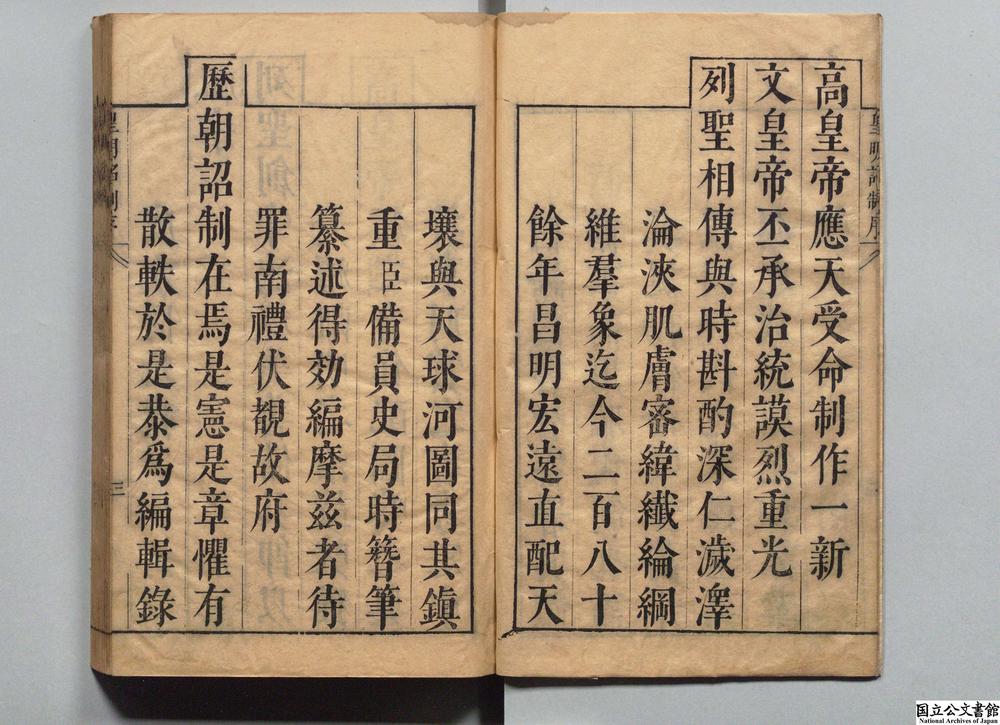 高皇帝應天受命制作一新
文皇帝丕承治統謨烈重光
列聖相傳與時斟酌深仁濊澤
淪浹肌膚審緯纎綸綱
維羣象迄今二百八十
餘年昌明宏遠直配天
壤與天球河圖同其鎮
重臣備員史局時簪筆
纂述得効編摩兹者待
罪南禮伏覩故府
歷朝詔制在焉是憲是章懼有
散軼於是恭爲編輯錄
皇明詔制序
三
国立公文書館
National Archives of Japan